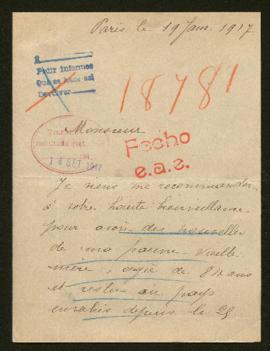 Paris le 19 Janv. 1917.
Pedir informes
18781
Monsieur
Fecho
e.a.e.
14 SET 1917
Je viens me recommander
à votre haute bienveillance
pour avoir des nouvelles
de ma pauvre vieille
mère, agée de 80 ans
et restée au pays
envahis depuis le 28